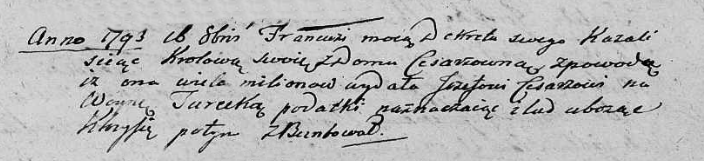 Anno 1793 16 8bris Francuzi mocą Dekretu swego Kazali
sciąc Krolową swoię z Domu Cesarzowną z powodu
iz ona wiele milionow wydała Jozefowi Cesarzowi na
Woynę Turecką podatki naznaczaiąc i lud ubożąc
potym zBuntował.